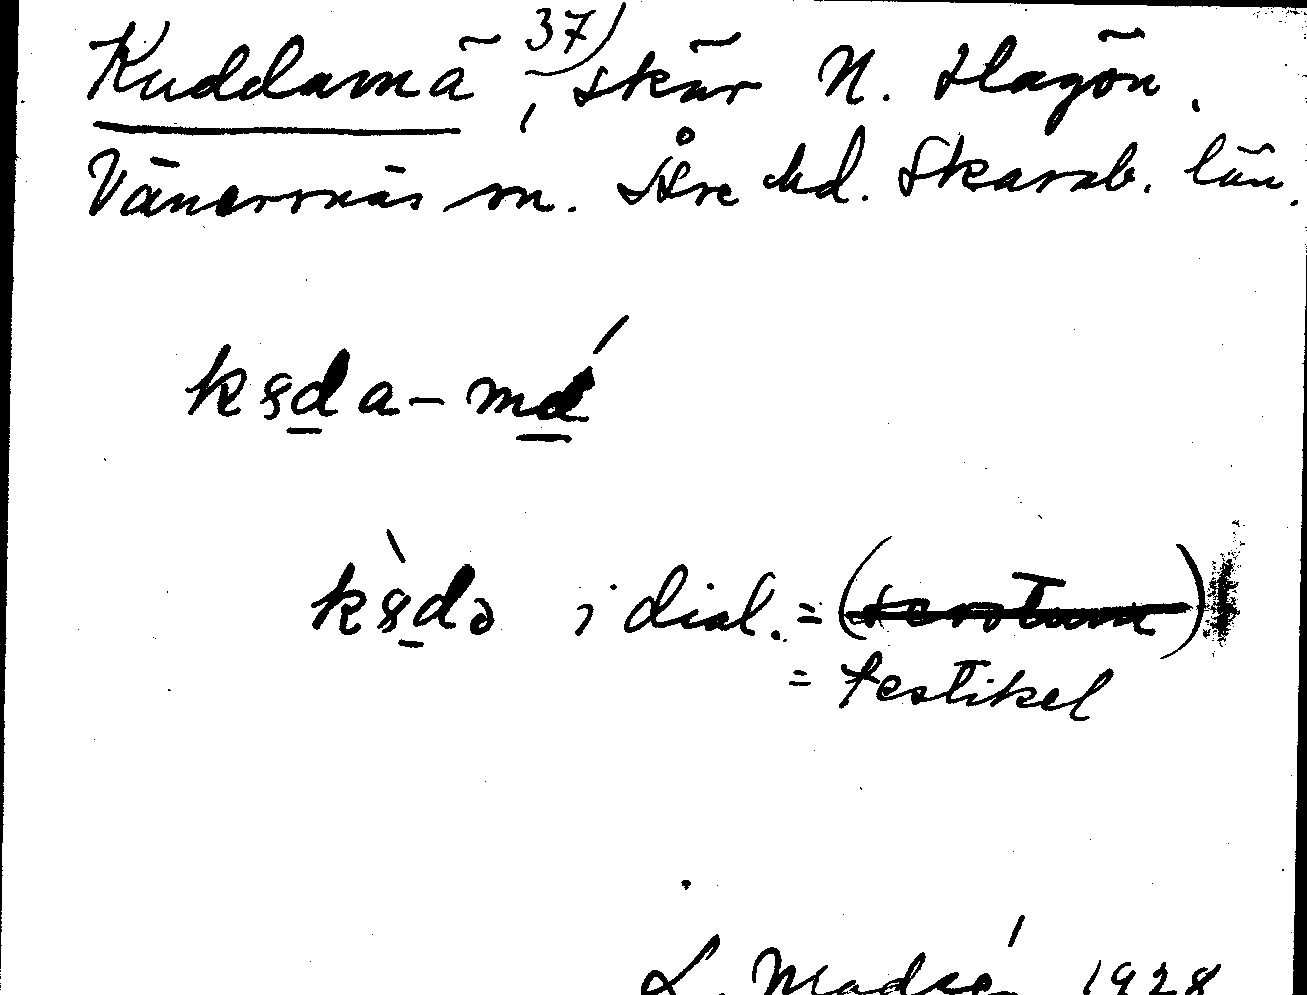 Kuddamä 37), skär N. Hagön.
Vänersnäs sn. Åse hd. Skarab. län.
kȣda-má
kȣ̀də i dial. = (scrotum)
= testikel
L. Modée 1928